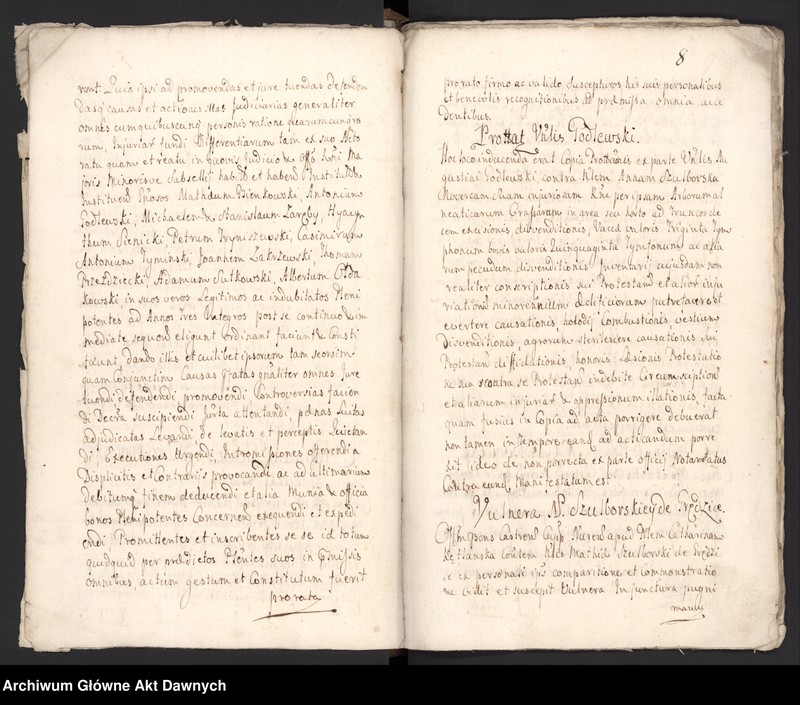 runt. Quia ipsi ad promovendas et jure tuendas defenden
dasq causas et actiones illas judiciarias generaliter
omnes cum quibuscunq personis ratione quarumcunq re
rum, Injuriar fundi Differentiarum tam ex suo Acto
ratu quam et reatu in quovis judicio
joris Minorisve Subsellij habit et habend Institut
Instituend Gnosos Bienkowski, Antonium
Godlewski, Michaelem & Stanislaum Zaręby, Hyacyn
thum Sienicki, Petrum Tryniszewski, Casimirum
Antonium Tyminski, Joannem Zakrzewski, Thomam
Przezdziecki, Adamum Sutkowski, Albertum Ołda
kowski, in suos veros Legitimos ac indubitatos Pleni
potentes ad Annos Tres Integros post se continuo & im
mediate sequen eligunt Ordinant faciunt & Consti
tuunt, dando illis et cuilibet ipsorum tam seorsim
quam Conjunctim Causas gnaliter omnes Jure
tuendi defendendi promovendi Controversias facien
di Decreta suscipiendi Juxta attentandi, pænas Luitas
adjudicatas Levandi de levatis et perceptis Quietan
di, Executiones Urgendi, Intromissiones offerendi a
Displicitis et Contrarijs provocandi ac ad ultimarium
debitumq finem deducendi et alia Munia & officia
bonos Plenipotentes Concernen exequendi et expedi
endi, Promittentes et inscribentes se se id totum
quidquid per prædictos Plentes suos in præmissis
omnibus, actum gestum et Constitutum fuerit
pro rato
8
pro rato firmo ac valido suscepturos his suis personalibus
et benevolis recognitionibus ad præmissa omnia acce
dentibus.
Prottat Vrulis Godlewski.
Hoc loco inducenda erat Copia Prottionis ex parte Vrulis Au
gustini Godlewski contra Annam Szulborska
Novercam Suam injuriosam per ipsam Arborum al
neaticarum Grassarum in area seu horto ad truncos de
cem excisionis, disvenditionis, Vacca valoris Triginta Tym
phonum bovis valoris Quinquaginta Tymfonum ac alia
rum pecudum disvenditionis Inventarij cujusdam non
realiter conscriptionis sui Protestan et alior inju
riation minorennium ædificiorum putrefacere et
evertere causationis, Combustionis, vestium
Disvenditionis, agrorum sterilescere causationis sui
Protestan diffidationis, honoris Læsionis Protestatio
ne sua contra se Protestan indebite Circumscription
et aliarum injuriar & oppressionum illationis, facta
quam fusius in Copia ad acta porrigere debuerat
non tamen in tempore eanq ad acticandum porre
xit ideo de non porrecta ex parte officij Notariatus
Contra eund Manifestatum est.
Vulnera Nb. Szulborskiey de Grędzice.
præsens Castren Nuren apud Catharinam
Szulborski de Grędzi
ce ex personali ipsius comparitione et Commonstratio
ne vidit et suscepit Vulnera In junctura pugni
manus
Archiwum Główne Akt Dawnych